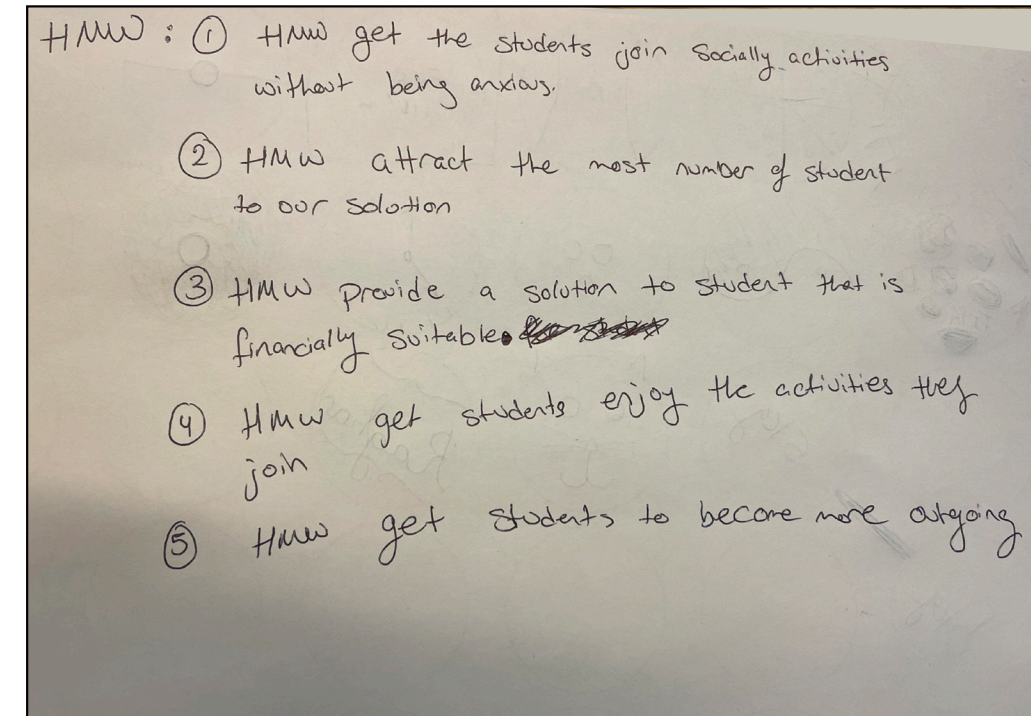 HMW : ① HMW get the students join Socially activities
without being anxious.
② HMW attract the most number of student
to our solution
③ HMW provide a solution to student that is
financially suitable.
④ HMW get students enjoy the activities they
join
⑤ HMW get students to become more outgoing